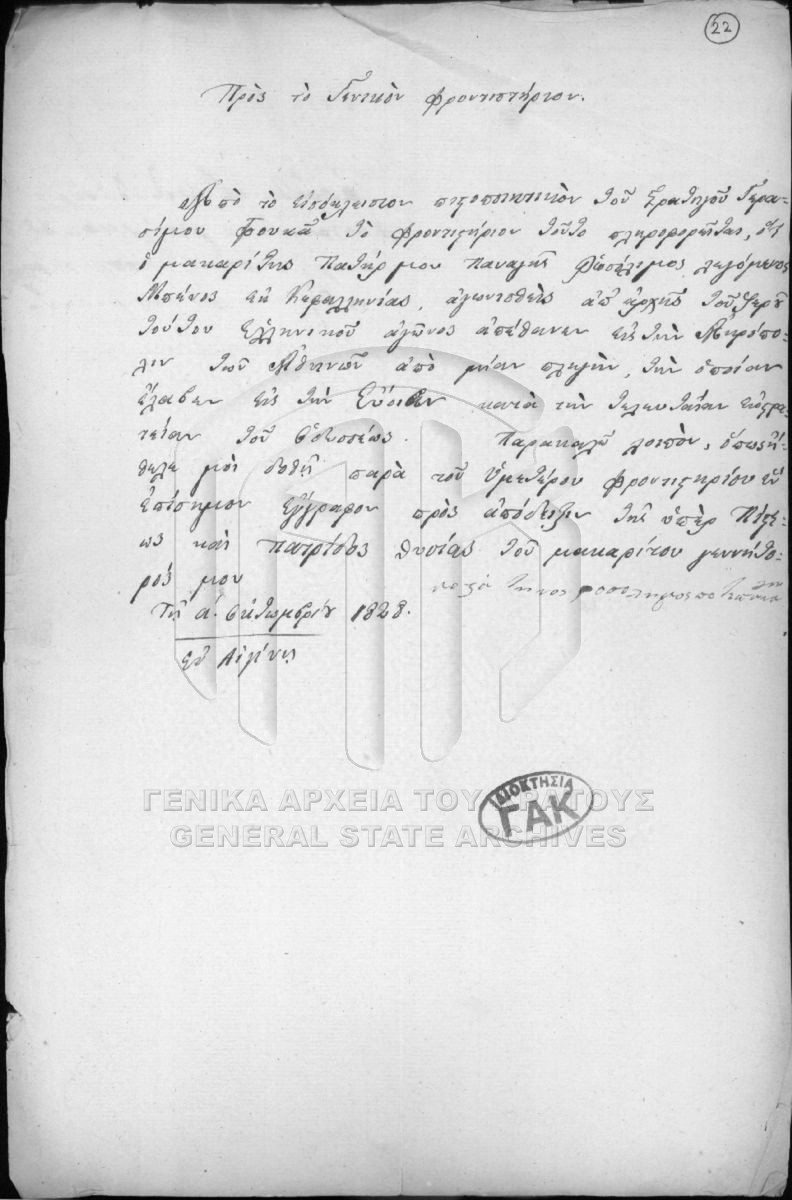 22
Πρὸς τὸ Γενικὸν Φροντιστήριον.
Ἀπὸ τὸ εἰσόκλειστον πιστοποιητικὸν τοῦ Στρατηγοῦ Γερα-
σίμου Φωκᾶ τὸ Φροντιστήριον τοῦτο πληροφορεῖται, ὅτι
ὁ μακαρίτης Πατήρ μου Παναγῆς λεγόμενος
Μπένος ἐκ Κεφαλληνίας, ἀγωνισθεὶς ἀπ' ἀρχῆς τοῦ ἱεροῦ
τούτου Ἑλληνικοῦ ἀγῶνος ἀπέθανεν εἰς τὴν Ἀκρόπο-
λιν τῶν Ἀθηνῶν ἀπὸ μίαν πληγὴν, τὴν ὁποίαν
ἔλαβεν εἰς τὴν Εὔβοιαν κατὰ τὴν τελευταίαν ἐκστρα-
τείαν τοῦ Ὀδυσσέως. Παρακαλῶ λοιπὸν, ὅπως ἤ-
θελε μοὶ δοθῇ παρὰ τοῦ Ὑμετέρου Φροντιστηρίου ἓν
ἐπίσημον ἔγγραφον πρὸς ἀπόδειξιν τῆς ὑπὲρ Πίστε-
ως καὶ Πατρίδος θυσίας τοῦ μακαρίτου γεννήτο-
ρός μου
Τῇ α΄. Ὀκτωμβρίου 1828.
Ἐν Αἰγίνῃ
ΙΔΙΟΚΤΗΣΙΑ
ΓΑΚ
ΓΕΝΙΚΑ ΑΡΧΕΙΑ ΤΟΥ ΚΡΑΤΟΥΣ
GENERAL STATE ARCHIVES